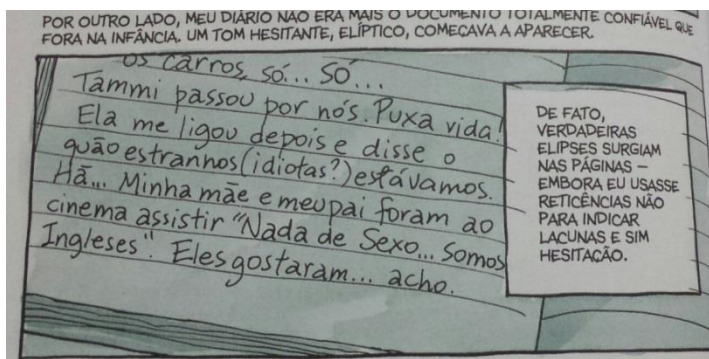 POR OUTRO LADO, MEU DIÁRIO NÃO ERA MAIS O DOCUMENTO TOTALMENTE CONFIÁVEL QUE
FORA NA INFÂNCIA. UM TOM HESITANTE, ELÍPTICO, COMEÇAVA A APARECER.
os carros, só... só...
Tammi passou por nós. Puxa vida!
Ela me ligou depois e disse o
quão estranhos (idiotas?) estávamos.
Hã... Minha mãe e meu pai foram ao
cinema assistir "Nada de Sexo... Somos
Ingleses". Eles gostaram... acho.
DE FATO,
VERDADEIRAS
ELIPSES SURGIAM
NAS PÁGINAS –
EMBORA EU USASSE
RETICÊNCIAS NÃO
PARA INDICAR
LACUNAS E SIM
HESITAÇÃO.